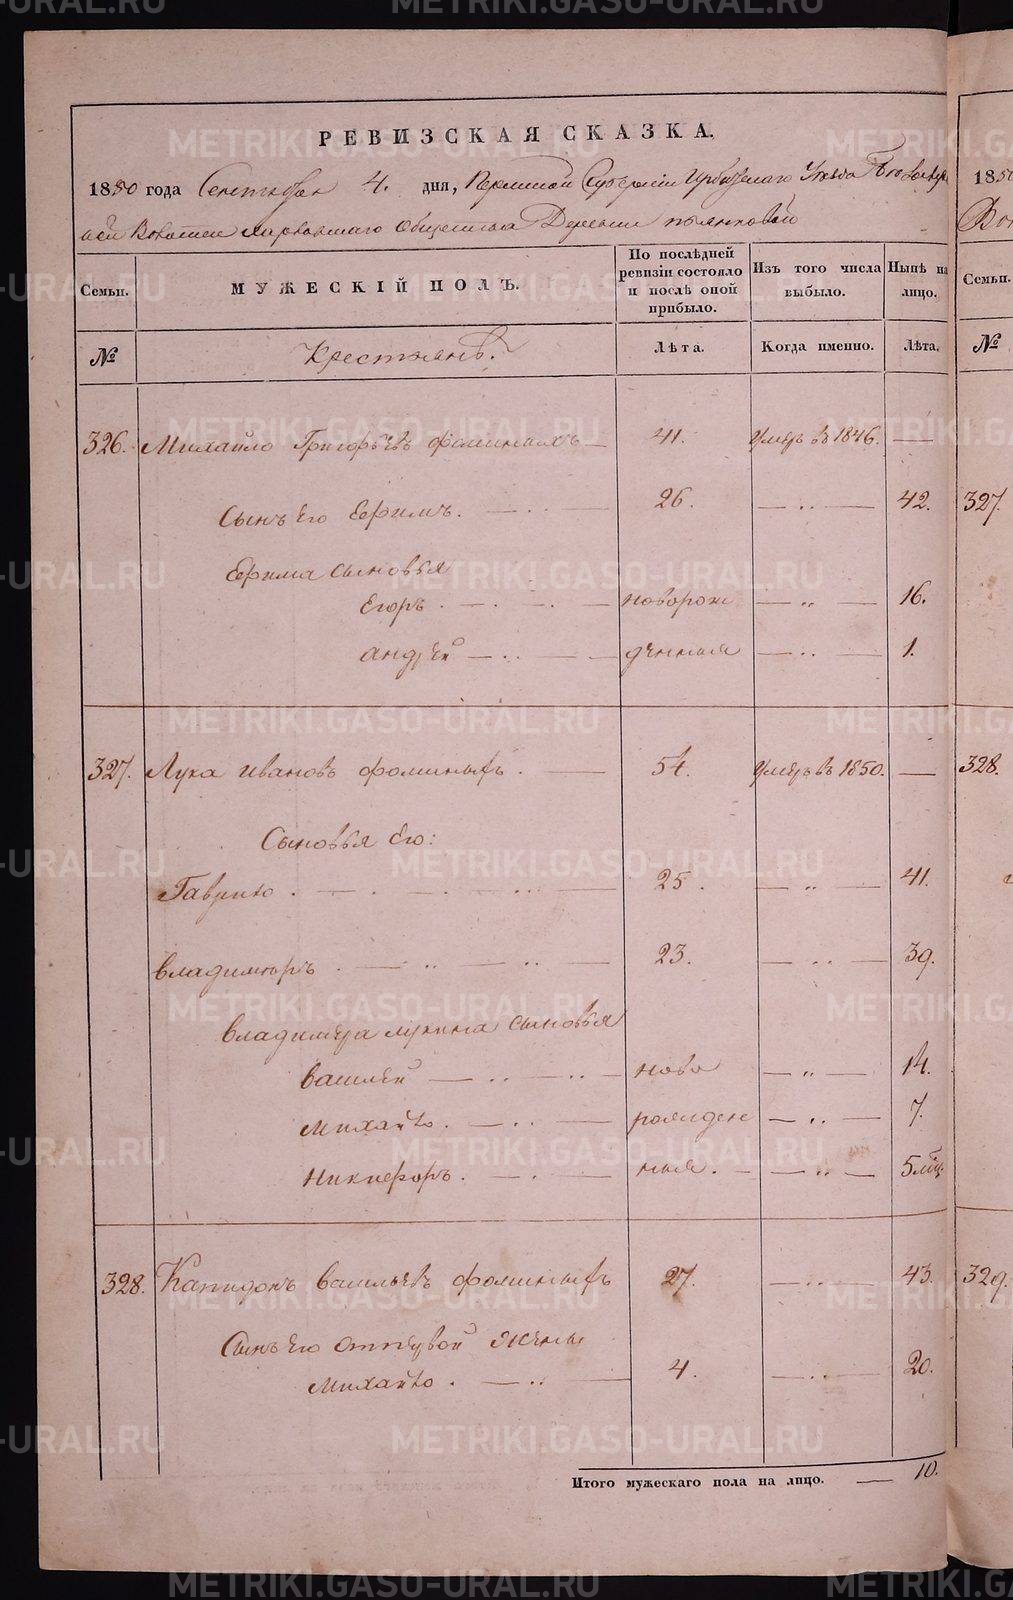 РЕВИЗСКАЯ СКАЗКА.
1850 года Сентября 4. дня, Пермской Губернии Ирбитскаго Уезда
Волости Харловскаго Общества Деревни
Семьи.
МУЖЕСКІЙ ПОЛЪ.
По послѣдней ревизіи состояло и послѣ оной прибыло.
Изъ того числа выбыло.
Нынѣ на лицо.
№
Крестьянъ.
Лѣта.
Когда именно.
Лѣта.
326. Михайло Григорьевъ Фоминыхъ — 41. Умеръ въ 1846. —
Сынъ Его Ефимъ. — 26. — " — 42.
Ефима сыновья
Егоръ. — новорож — " — 16.
Андрей — денныя — " — 1.
327. Лука Ивановъ Фоминыхъ. — 54. Умеръ въ 1850. —
Сыновья Его:
Гаврило. — 25. — " — 41.
Владимиръ. — 23. — " — 39.
Владимера Лукина сыновья
Василей — ново — " — 14.
Михайло. — рожден — " — 7.
Никифоръ. — ныя. — " — 5 мѣц.
328. Капидонъ Васильевъ Фоминыхъ 27. — " — 43.
Сынъ Его отъ первой Жены
Михайло. — 4. — " — 20.
Итого мужескаго пола на лицо. — 10.
185
Семьи.
№
327.
328.
329.
METRIKI.GASO-URAL.RU